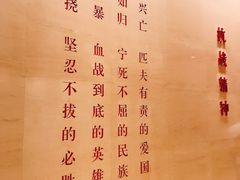 抗战精神
兴亡 匹夫有责的爱国
如归 宁死不屈的民族
暴 血战到底的英雄
挠 坚忍不拔的必胜